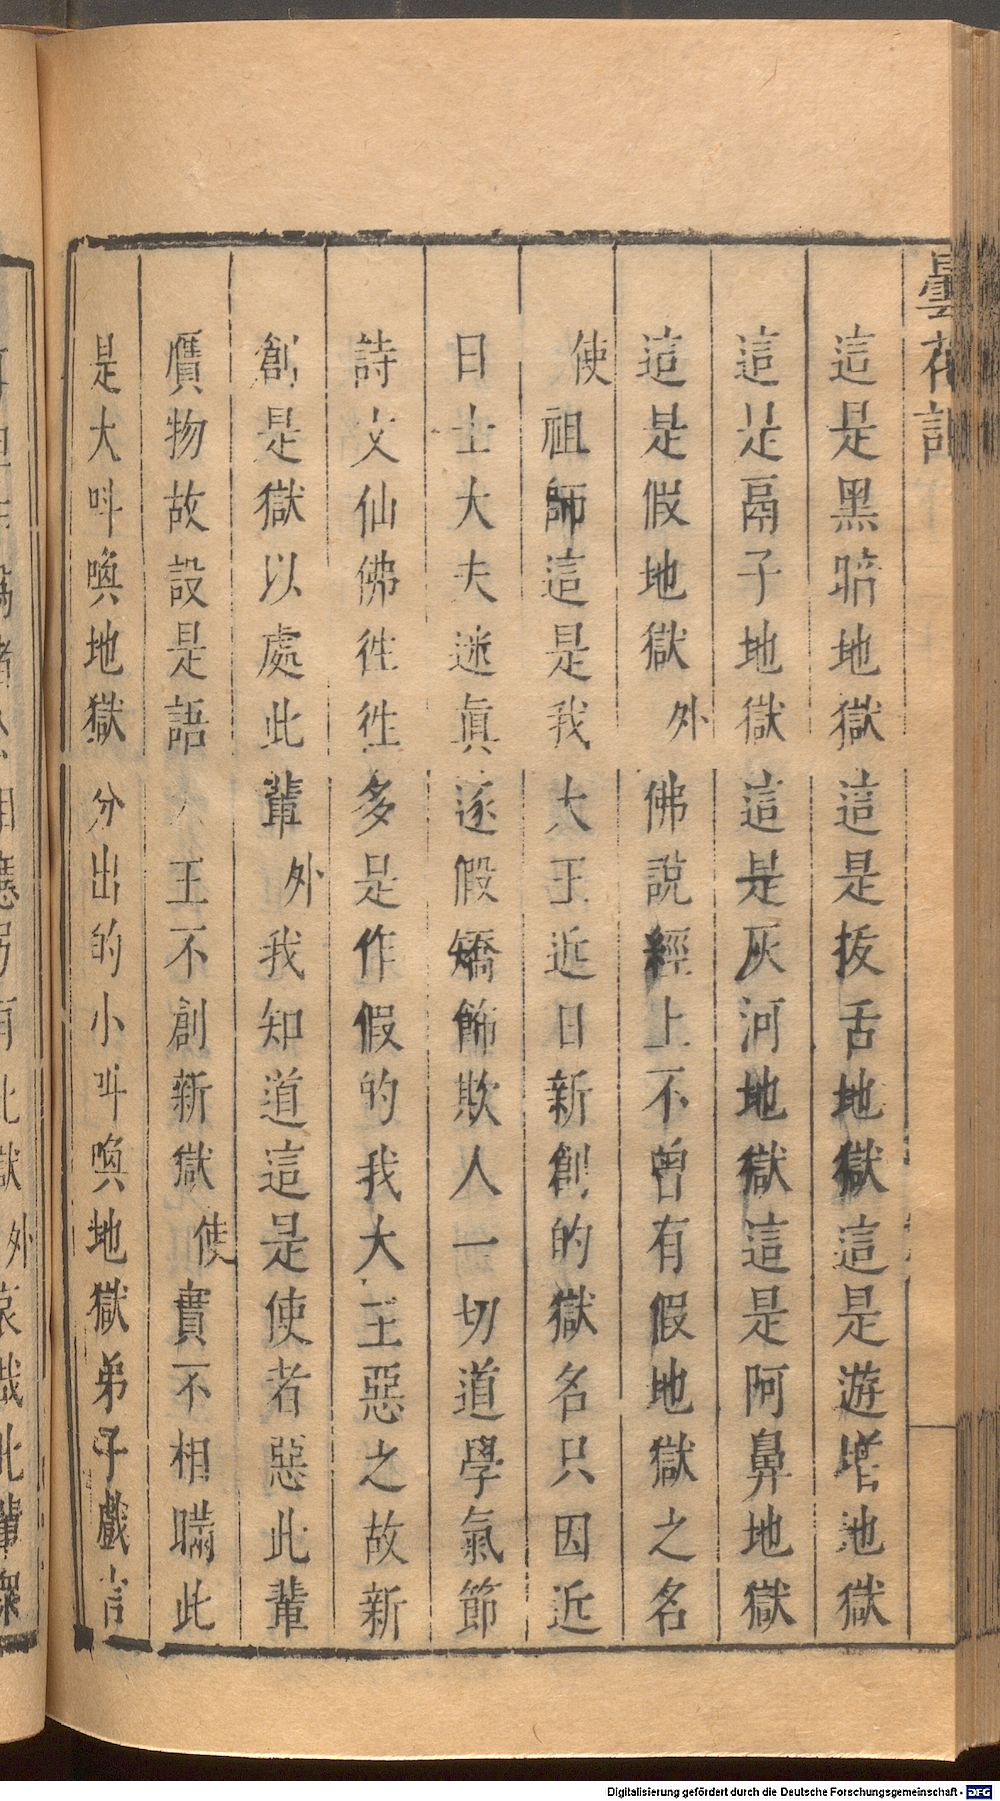 曇花記
這是黑暗地獄這是拔舌地獄這是遊增地獄
這是鬲子地獄這是灰河地獄這是阿鼻地獄
這是假地獄外佛說經上不曾有假地獄之名
使祖師這是我大王近日新創的獄名只因近
日士大夫迷眞逐假矯飾欺人一切道學氣節
詩文仙佛徃徃多是作假的我大王惡之故新
創是獄以處此輩外我知道這是使者惡此輩
贋物故設是語大王不創新獄使實不相瞞此
是大呌喚地獄分出的小呌喚地獄弟子戲言
Digitalisierung gefördert durch die Deutsche Forschungsgemeinschaft - DFG